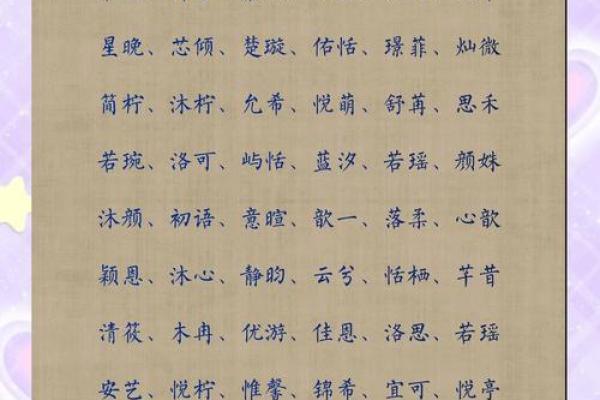 星晚、芯倾、楚璇、佑恬、璟菲、灿微
简柠、沐柠、允希、悦萌、舒苒、思禾
若琬、洛可、屿恬、蓝汐、若瑶、颜姝
沐颜、初语、意暄、歆一、落柔、心歆
颖恩、沐心、静昀、云兮、恬栖、芊昔
清筱、木冉、优游、佳恩、洛思、若瑶
安艺、悦柠、惟馨、锦希、宜可、悦亭